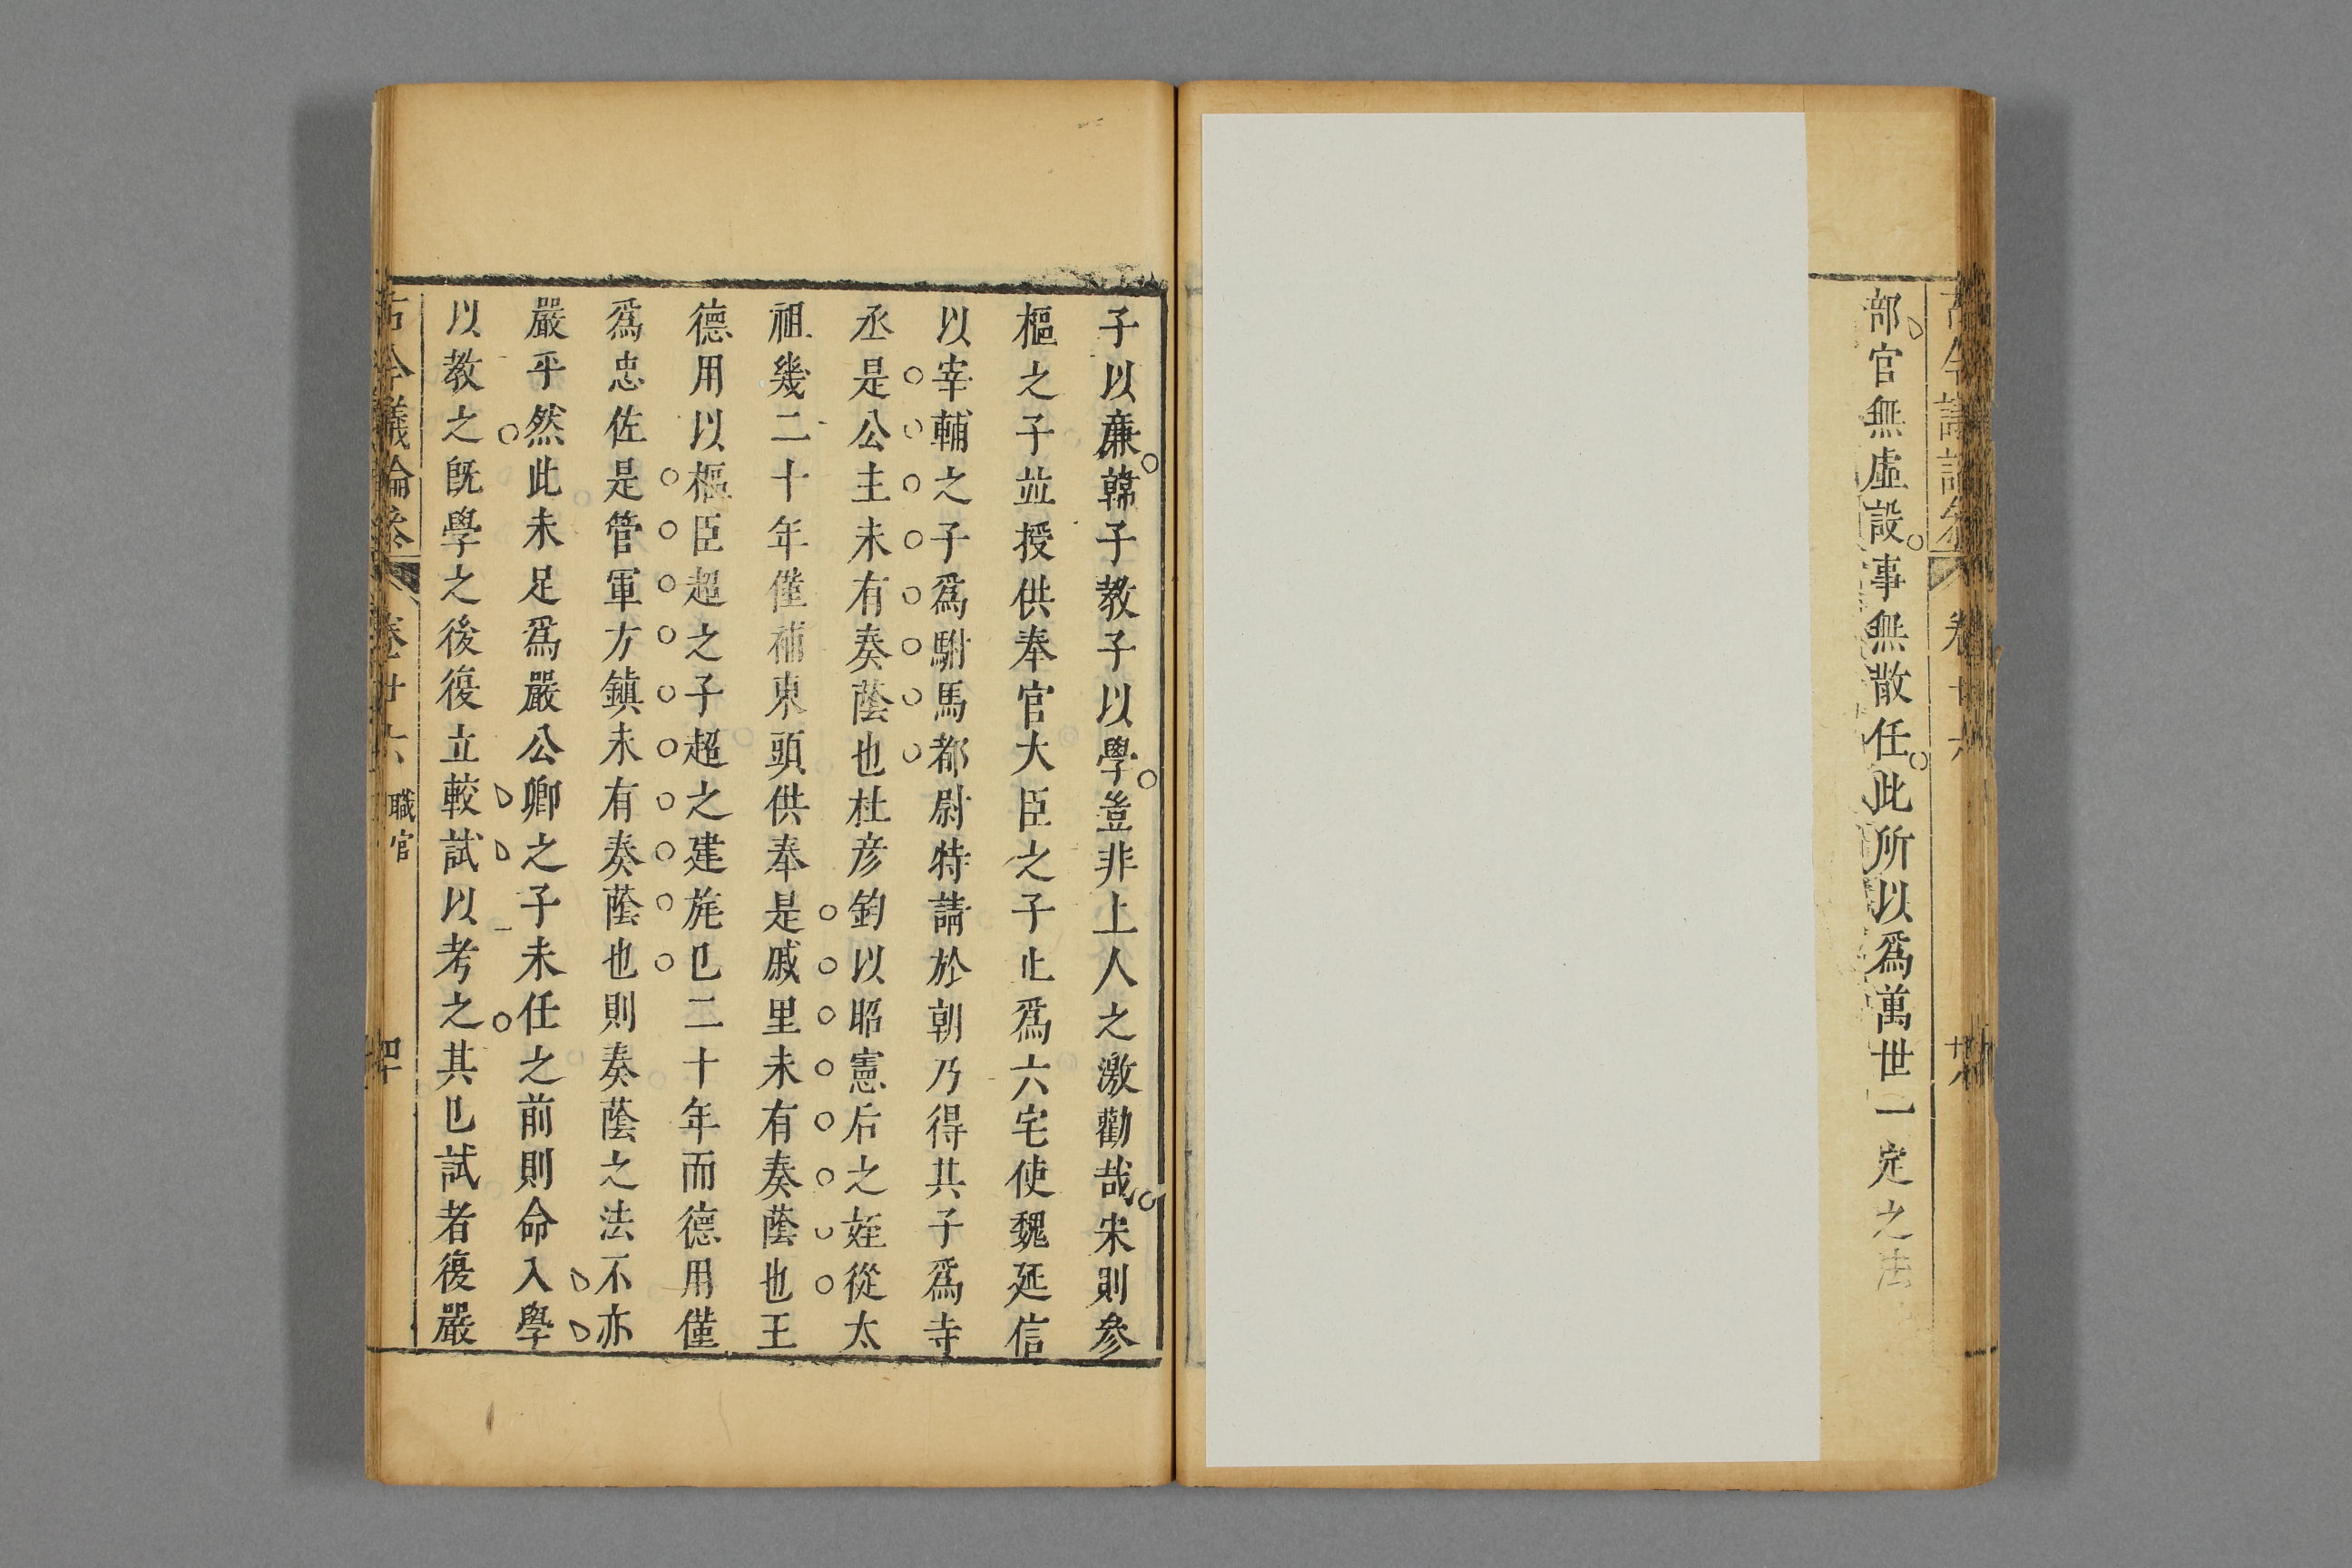 部官無虛設事無散任此所以爲萬世一定之法
子以廉韓子教子以學豈非上人之激勸哉宋則參
樞之子並授供奉官大臣之子止爲六宅使魏延信
以宰輔之子爲駙馬都尉特請於朝乃得其子爲寺
丞是公主未有奏蔭也杜彦鈞以昭憲后之姪從太
祖幾二十年僅補東頭供奉是戚里未有奏蔭也王
德用以樞臣超之子超之建旄已二十年而德用僅
爲忠佐是管軍方鎮未有奏蔭也則奏蔭之法不亦
嚴乎然此未足爲嚴公卿之子未任之前則命入學
以教之既學之後復立較試以考之其已試者復嚴
古今議論叅 卷廿六 職官